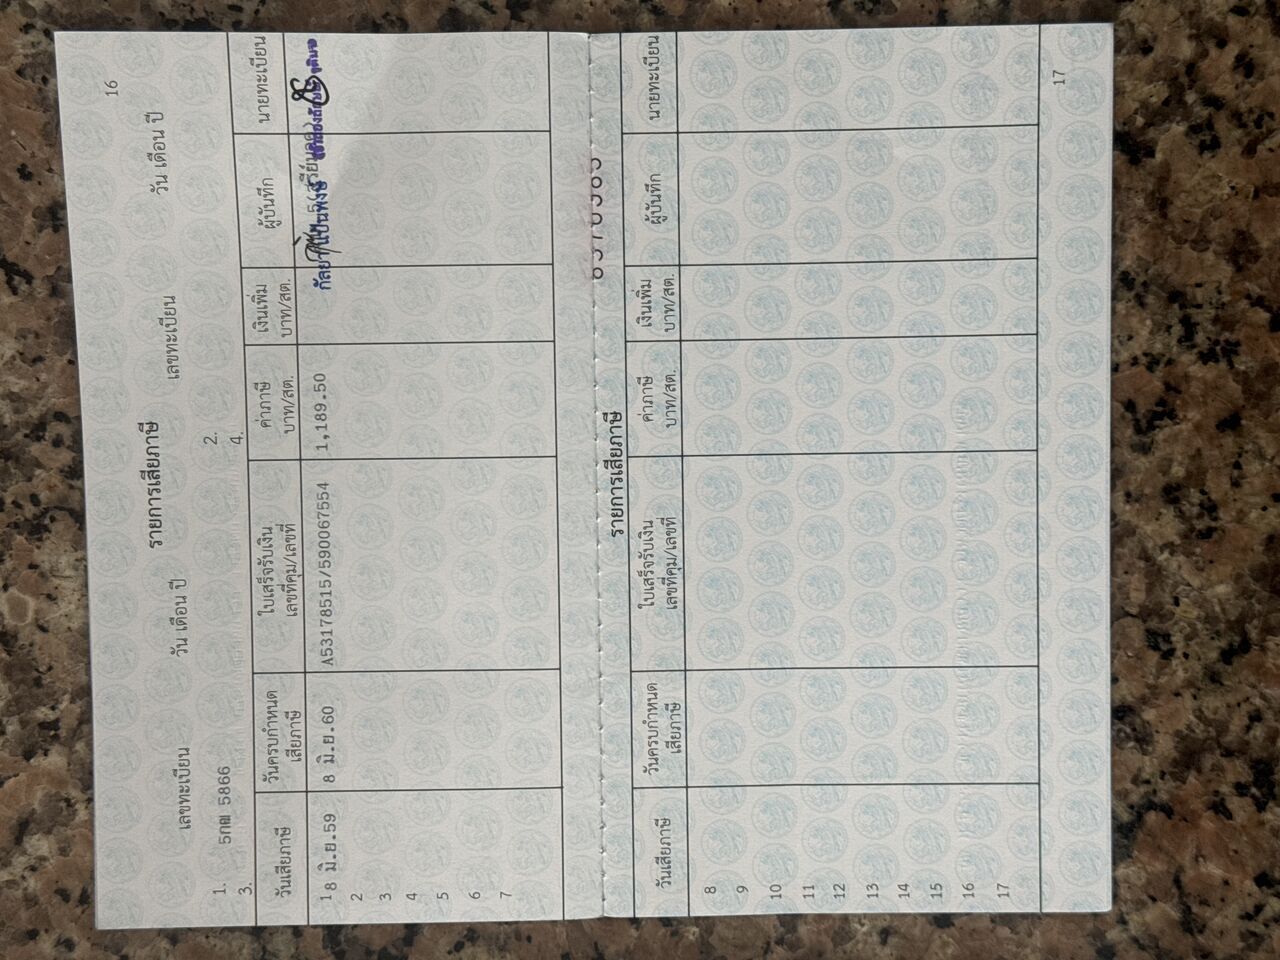 16
รายการเสียภาษี
เลขทะเบียน วัน เดือน ปี เลขทะเบียน วัน เดือน ปี
1. 5กฒ 5866 2.
3. 4.
วันเสียภาษี วันครบกำหนดเสียภาษี ใบเสร็จรับเงิน เลขที่คุม/เลขที่ ค่าภาษี บาท/สต. เงินเพิ่ม บาท/สต. ผู้บันทึก นายทะเบียน
1 8 มิ.ย.59 8 มิ.ย.60 A53178515/590067554 1,189.50
2
3
4
5
6
7
รายการเสียภาษี
วันเสียภาษี วันครบกำหนดเสียภาษี ใบเสร็จรับเงิน เลขที่คุม/เลขที่ ค่าภาษี บาท/สต. เงินเพิ่ม บาท/สต. ผู้บันทึก นายทะเบียน
8
9
10
11
12
13
14
15
16
17
17